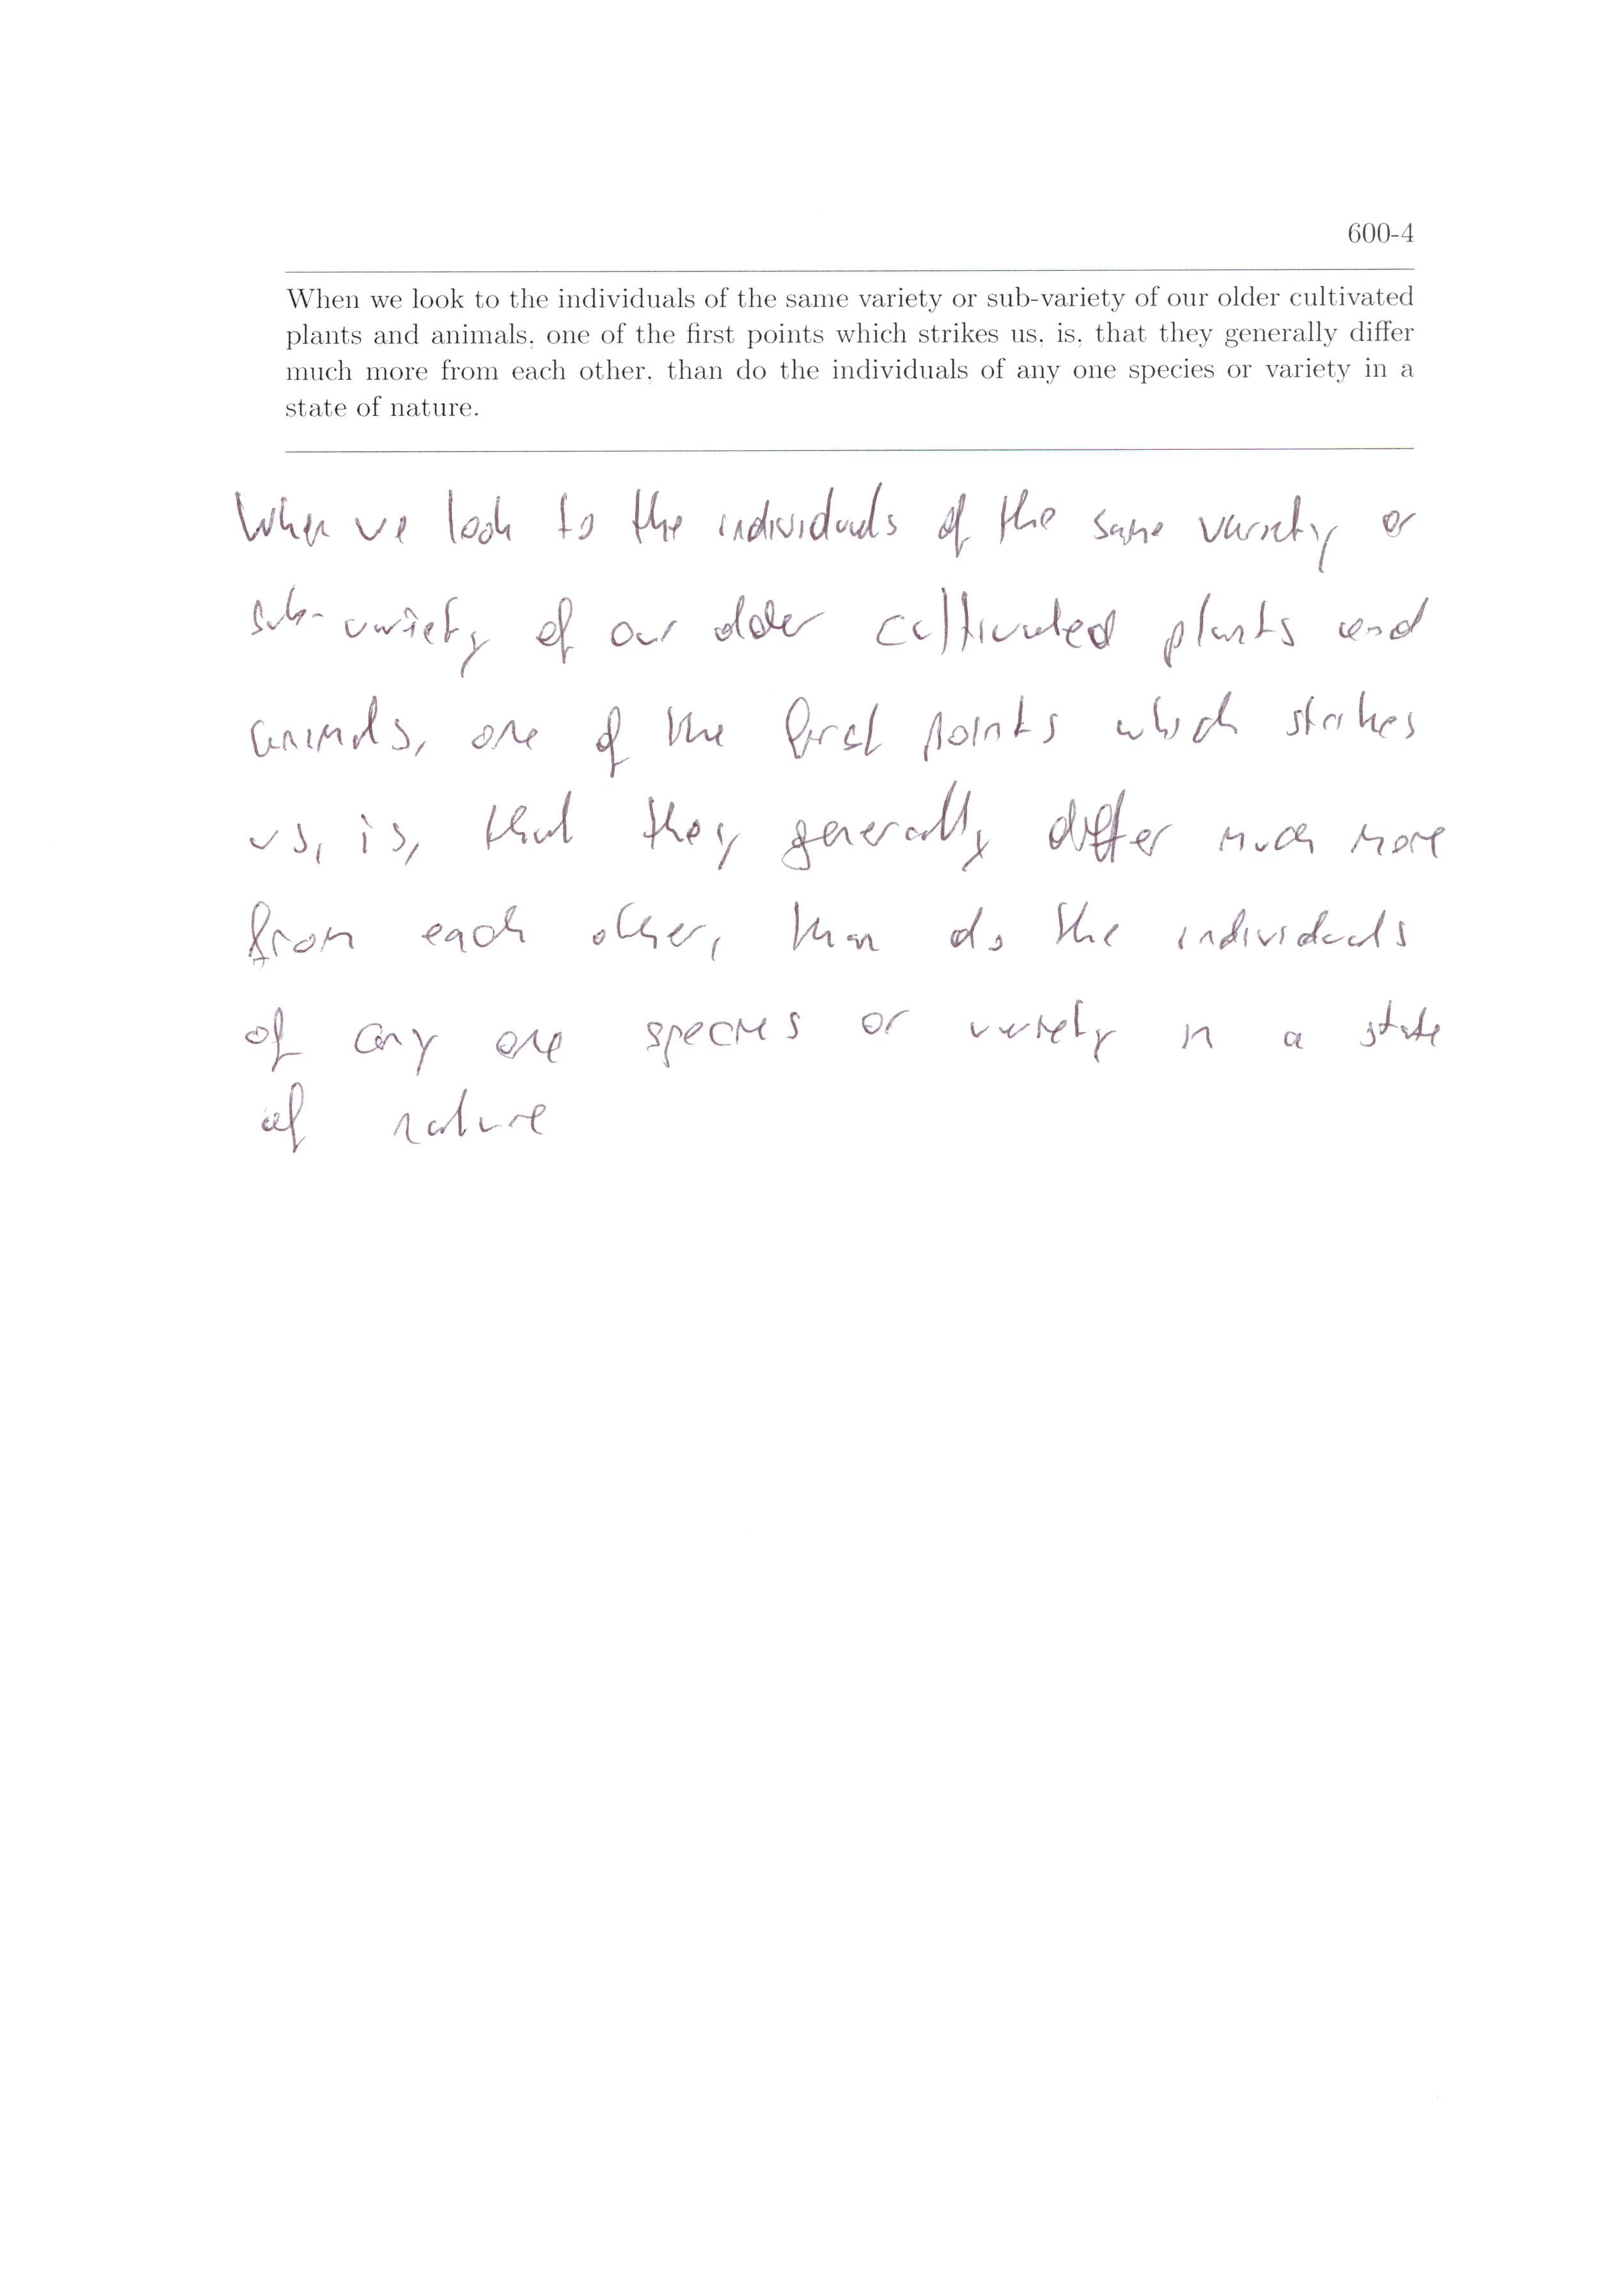 600-4
When we look to the individuals of the same variety or sub-variety of our older cultivated
plants and animals, one of the first points which strikes us, is, that they generally differ
much more from each other, than do the individuals of any one species or variety in a
state of nature.
When we look to the individuals of the same variety or
sub-variety of our older cultivated plants and
animals, one of the first points which strikes
us, is, that they generally differ much more
from each other, than do the individuals
of any one species or variety in a state
of nature